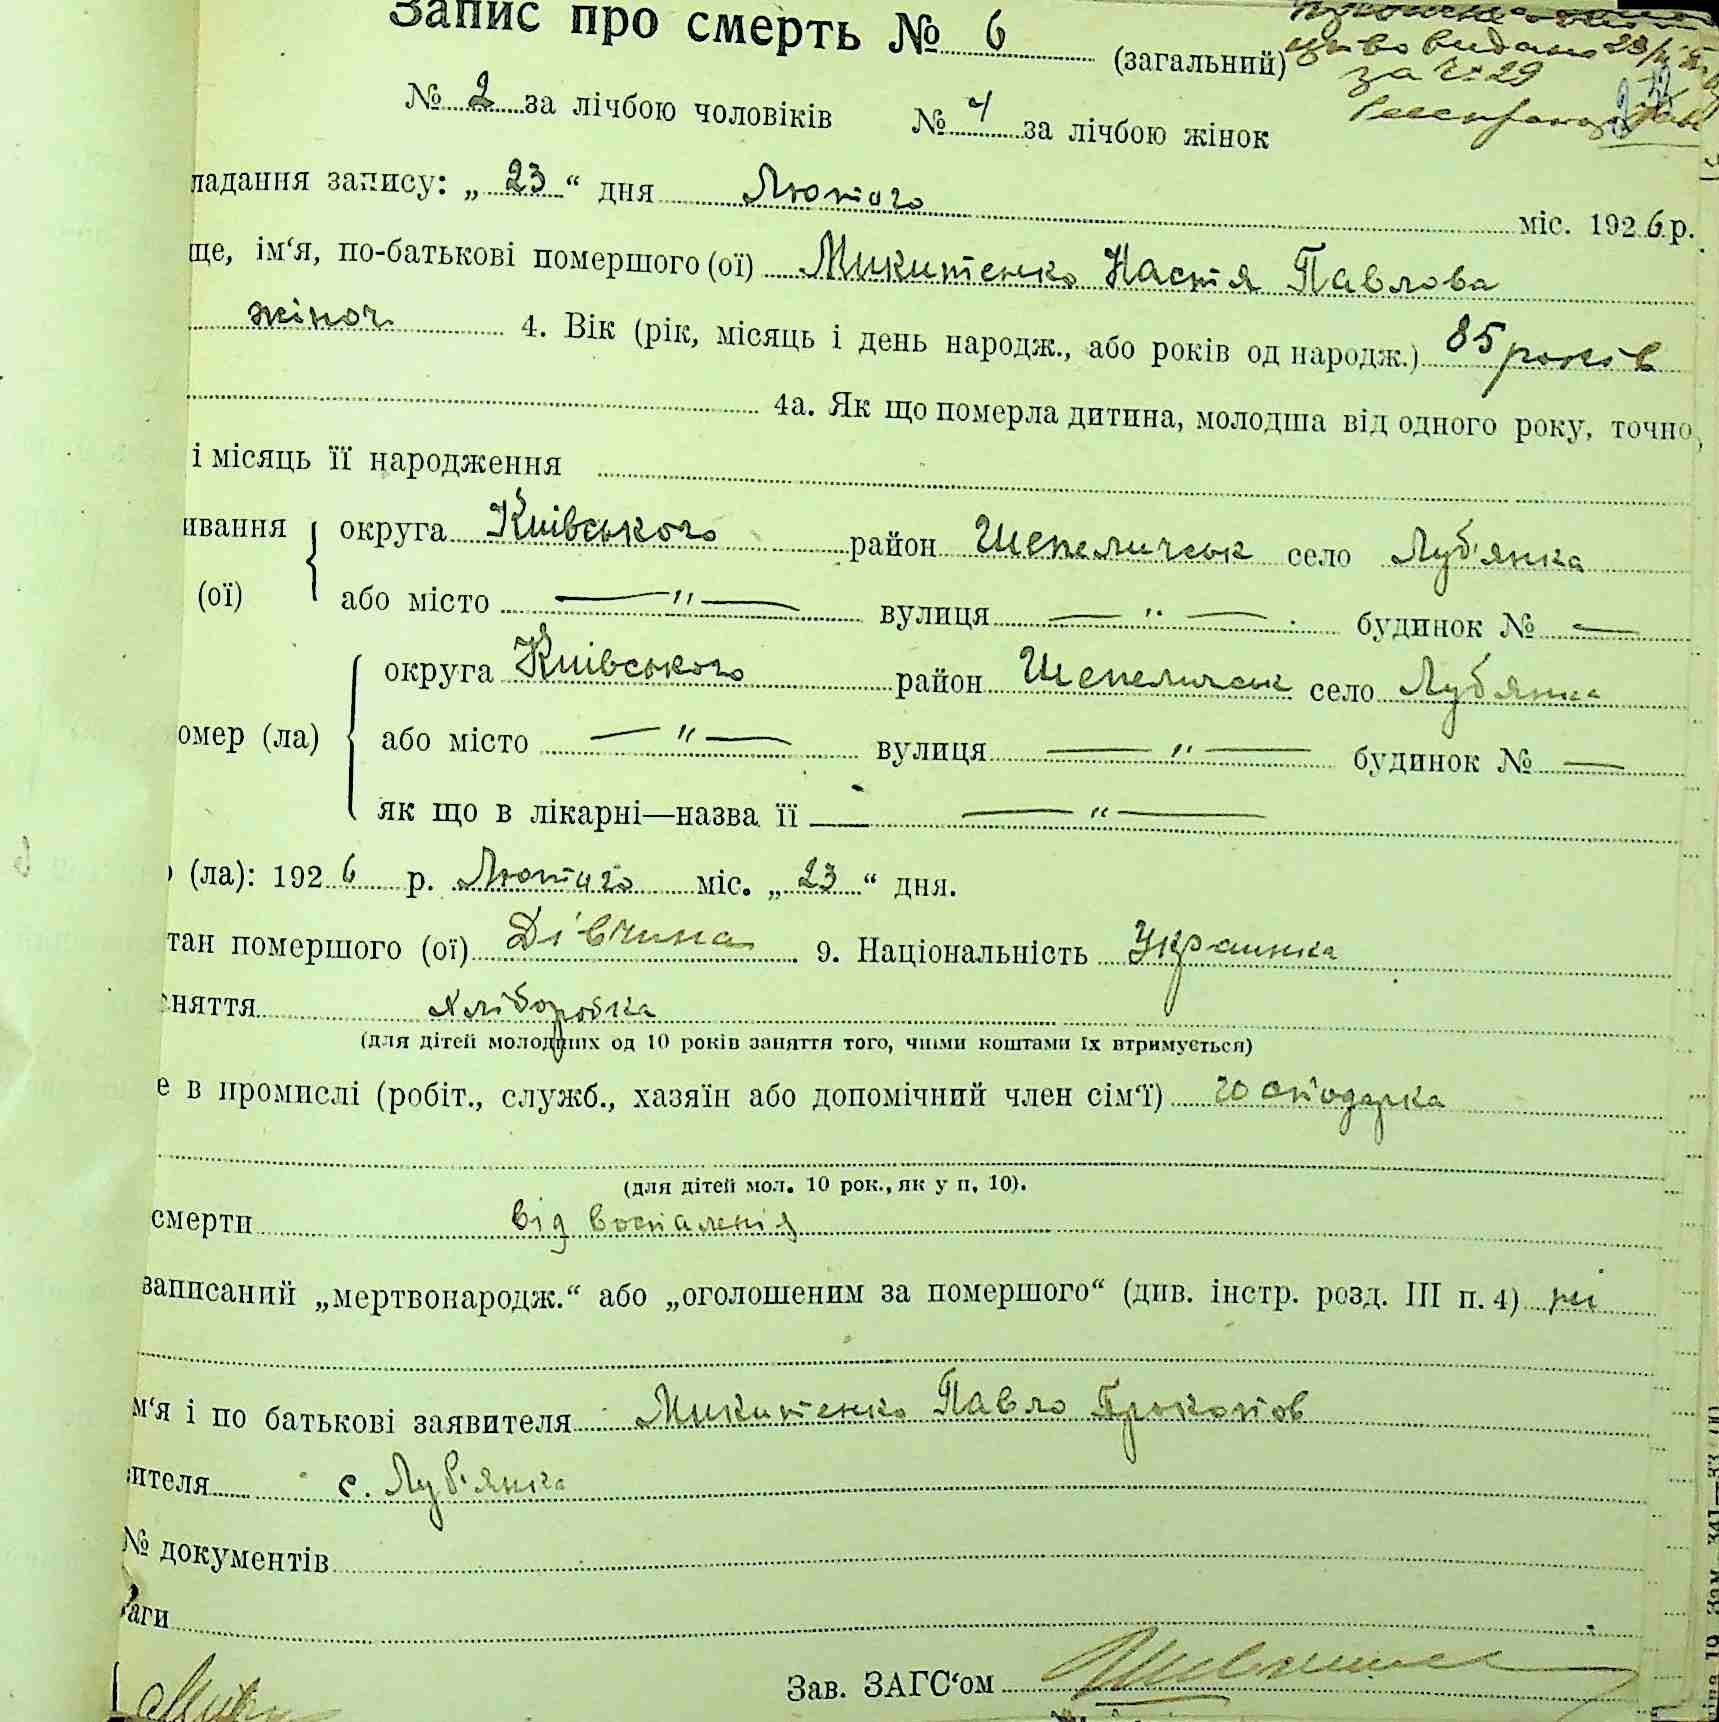 Запис про смерть № 6 (загальний)
видано 23/
за ч. 29
№ 2 за лічбою чоловіків № 4 за лічбою жінок
ладання запису: „ 23 “ дня Лютого міс. 1926 р.
ще, ім‘я, по-батькові помершого (ої) Микитенко Настя Павлова
жіноч. 4. Вік (рік, місяць і день народж., або років од народж.) 85 років
4а. Як що померла дитина, молодша від одного року, точно,
і місяць її народження
ивання округа Київського район Шепеличськ село Луб'янка
(ої) або місто — " — вулиця — " — будинок № —
округа Київського район Шепеличськ село Луб'янка
омер (ла) або місто — " — вулиця — " — будинок № —
як що в лікарні—назва її — " —
(ла): 1926 р. Лютого міс. „ 23 “ дня.
тан помершого (ої) Дівчина. 9. Національність Украинка
няття хліборобка
(для дітей молодших од 10 років заняття того, чиїми коштами їх втримується)
е в промислі (робіт., служб., хазяїн або допомічний член сім‘ї) господарка
(для дітей мол. 10 рок., як у п. 10).
смерти від воспаленія
записаний „мертвонародж.“ або „оголошеним за помершого“ (див. інстр. розд. III п. 4) ні
м‘я і по батькові заявителя Микитенко Павло Прокопов
ителя с. Луб'янка
№ документів
аги
Зав. ЗАГС‘ом